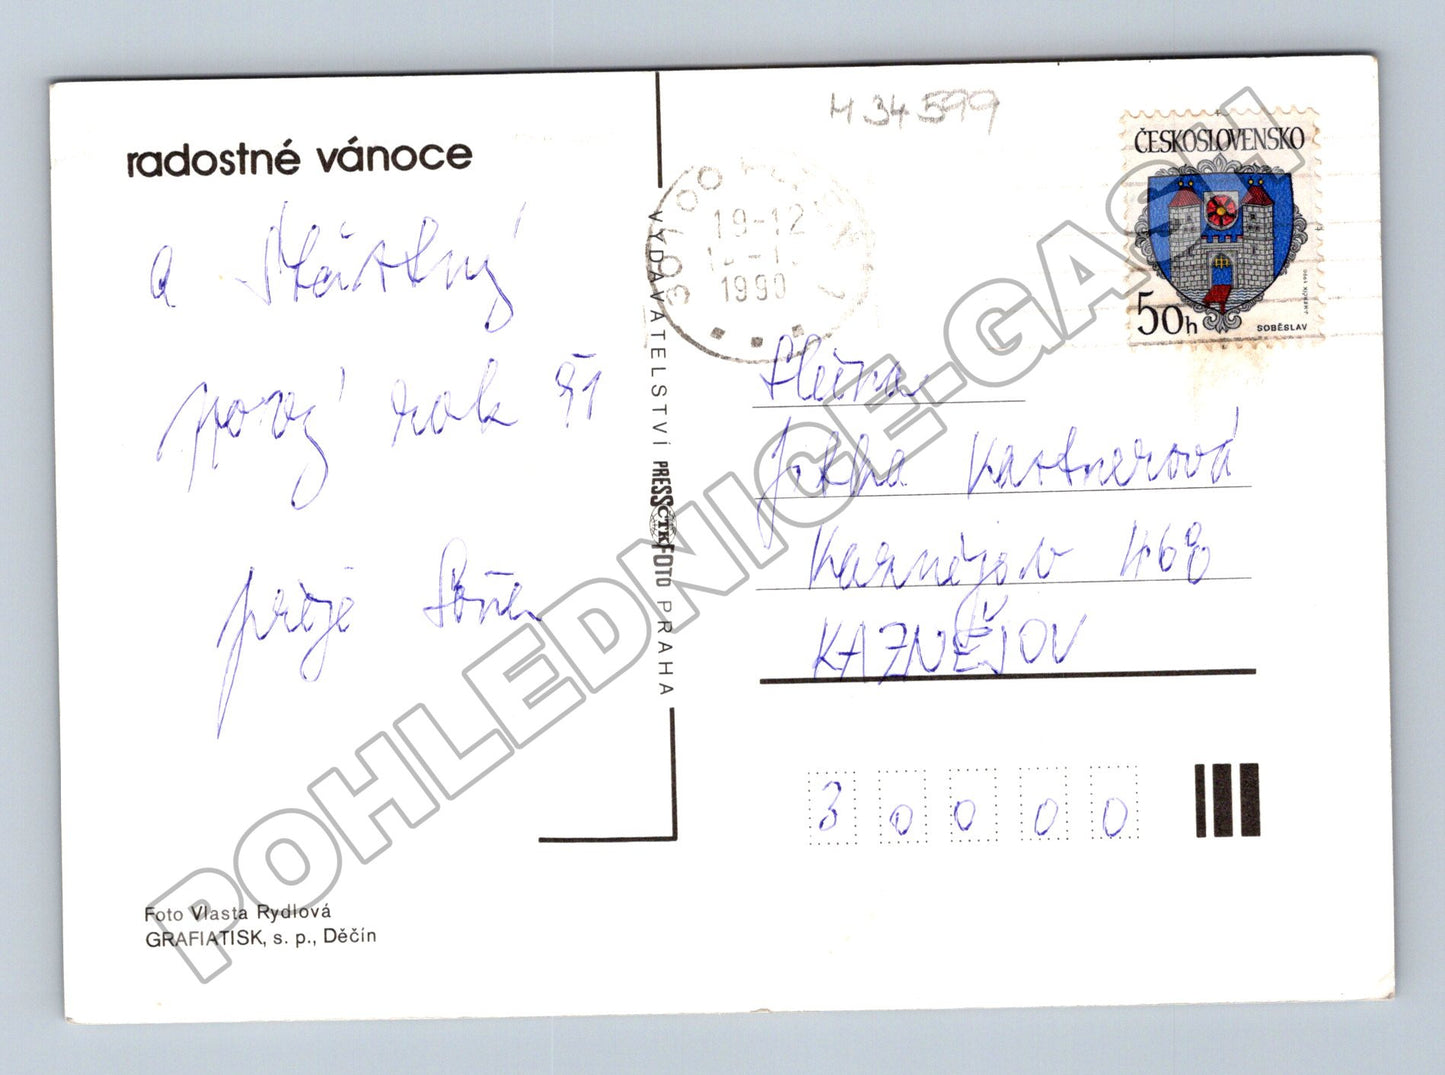 radostné vánoce
a šťastný
nový rok 91
přeje
VYDAVATELSTVÍ PRESSFOTO PRAHA
ČTK
Foto Vlasta Rydlová
GRAFIATISK, s. p., Děčín
H 34599
19-12
1990
ČESKOSLOVENSKO
50h
SOBĚSLAV
Jitka Kastnerová
Kaznějov 468
KAZNĚJOV
3 0 0 0 0
POHLEDNICE-GASH